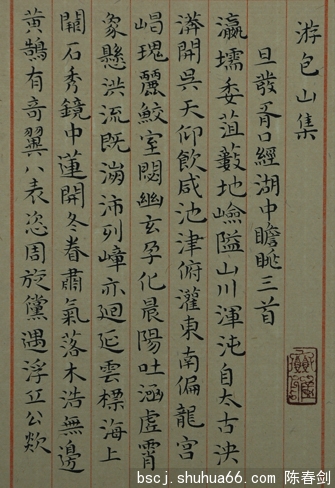 游包山集
旦發胥口經湖中瞻眺三首
瀛壖委菹藪地嶮隘山川渾沌自太古泱
漭開吳天仰飲咸池津俯灌東南偏龍宮
嵑瑰麗鮫室閟幽玄孕化晨陽吐涵虛霄
象懸洪流既瀰沛列嶂亦迴延雲標海上
關石秀鏡中蓮開冬眷肅氣落木浩無邊
黃鵠有奇翼八表恣周旋儻遇浮丘公欻
bscj.shuhua66.com 陈春剑